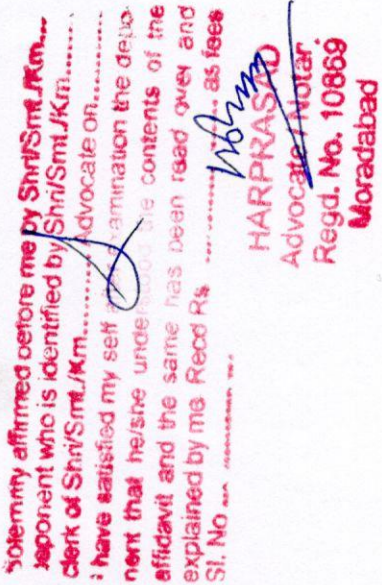 Solemnly affirmed before me by Shri/Smt./Km....
deponent who is identified by Shri/Smt./Km....
clerk of Shri/Smt./Km............Advocate on............
I have satisfied my self examination the depo-
nent that he/she understood the contents of the
affidavit and the same has been read over and
explained by me. Recd Rs. ............ as fees
Sl. No ...............
HARPRASAD
Advocate/Notar
Regd. No. 10869
Moradabad